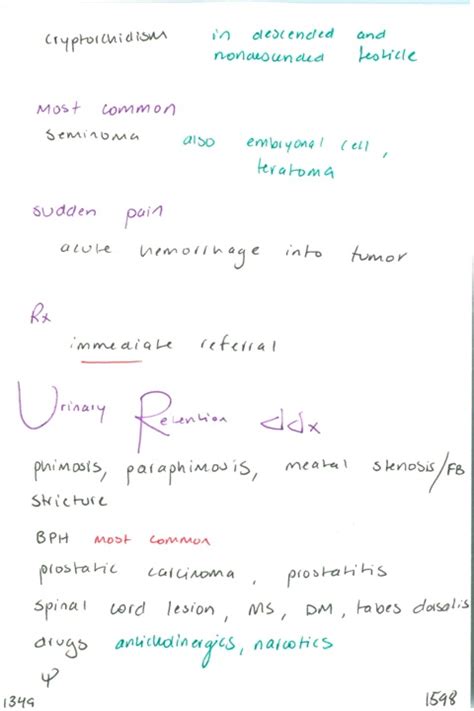 cryptorchidism in descended and
nondescended testicle
Most common
seminoma also embryonal cell,
teratoma
sudden pain
acute hemorrhage into tumor
Rx
immediate referral
Urinary Retention ddx
phimosis, paraphimosis, meatal stenosis/FB
stricture
BPH most common
prostatic carcinoma, prostatitis
spinal cord lesion, MS, DM, tabes dorsalis
drugs anticholinergics, narcotics
ψ
1349 1598